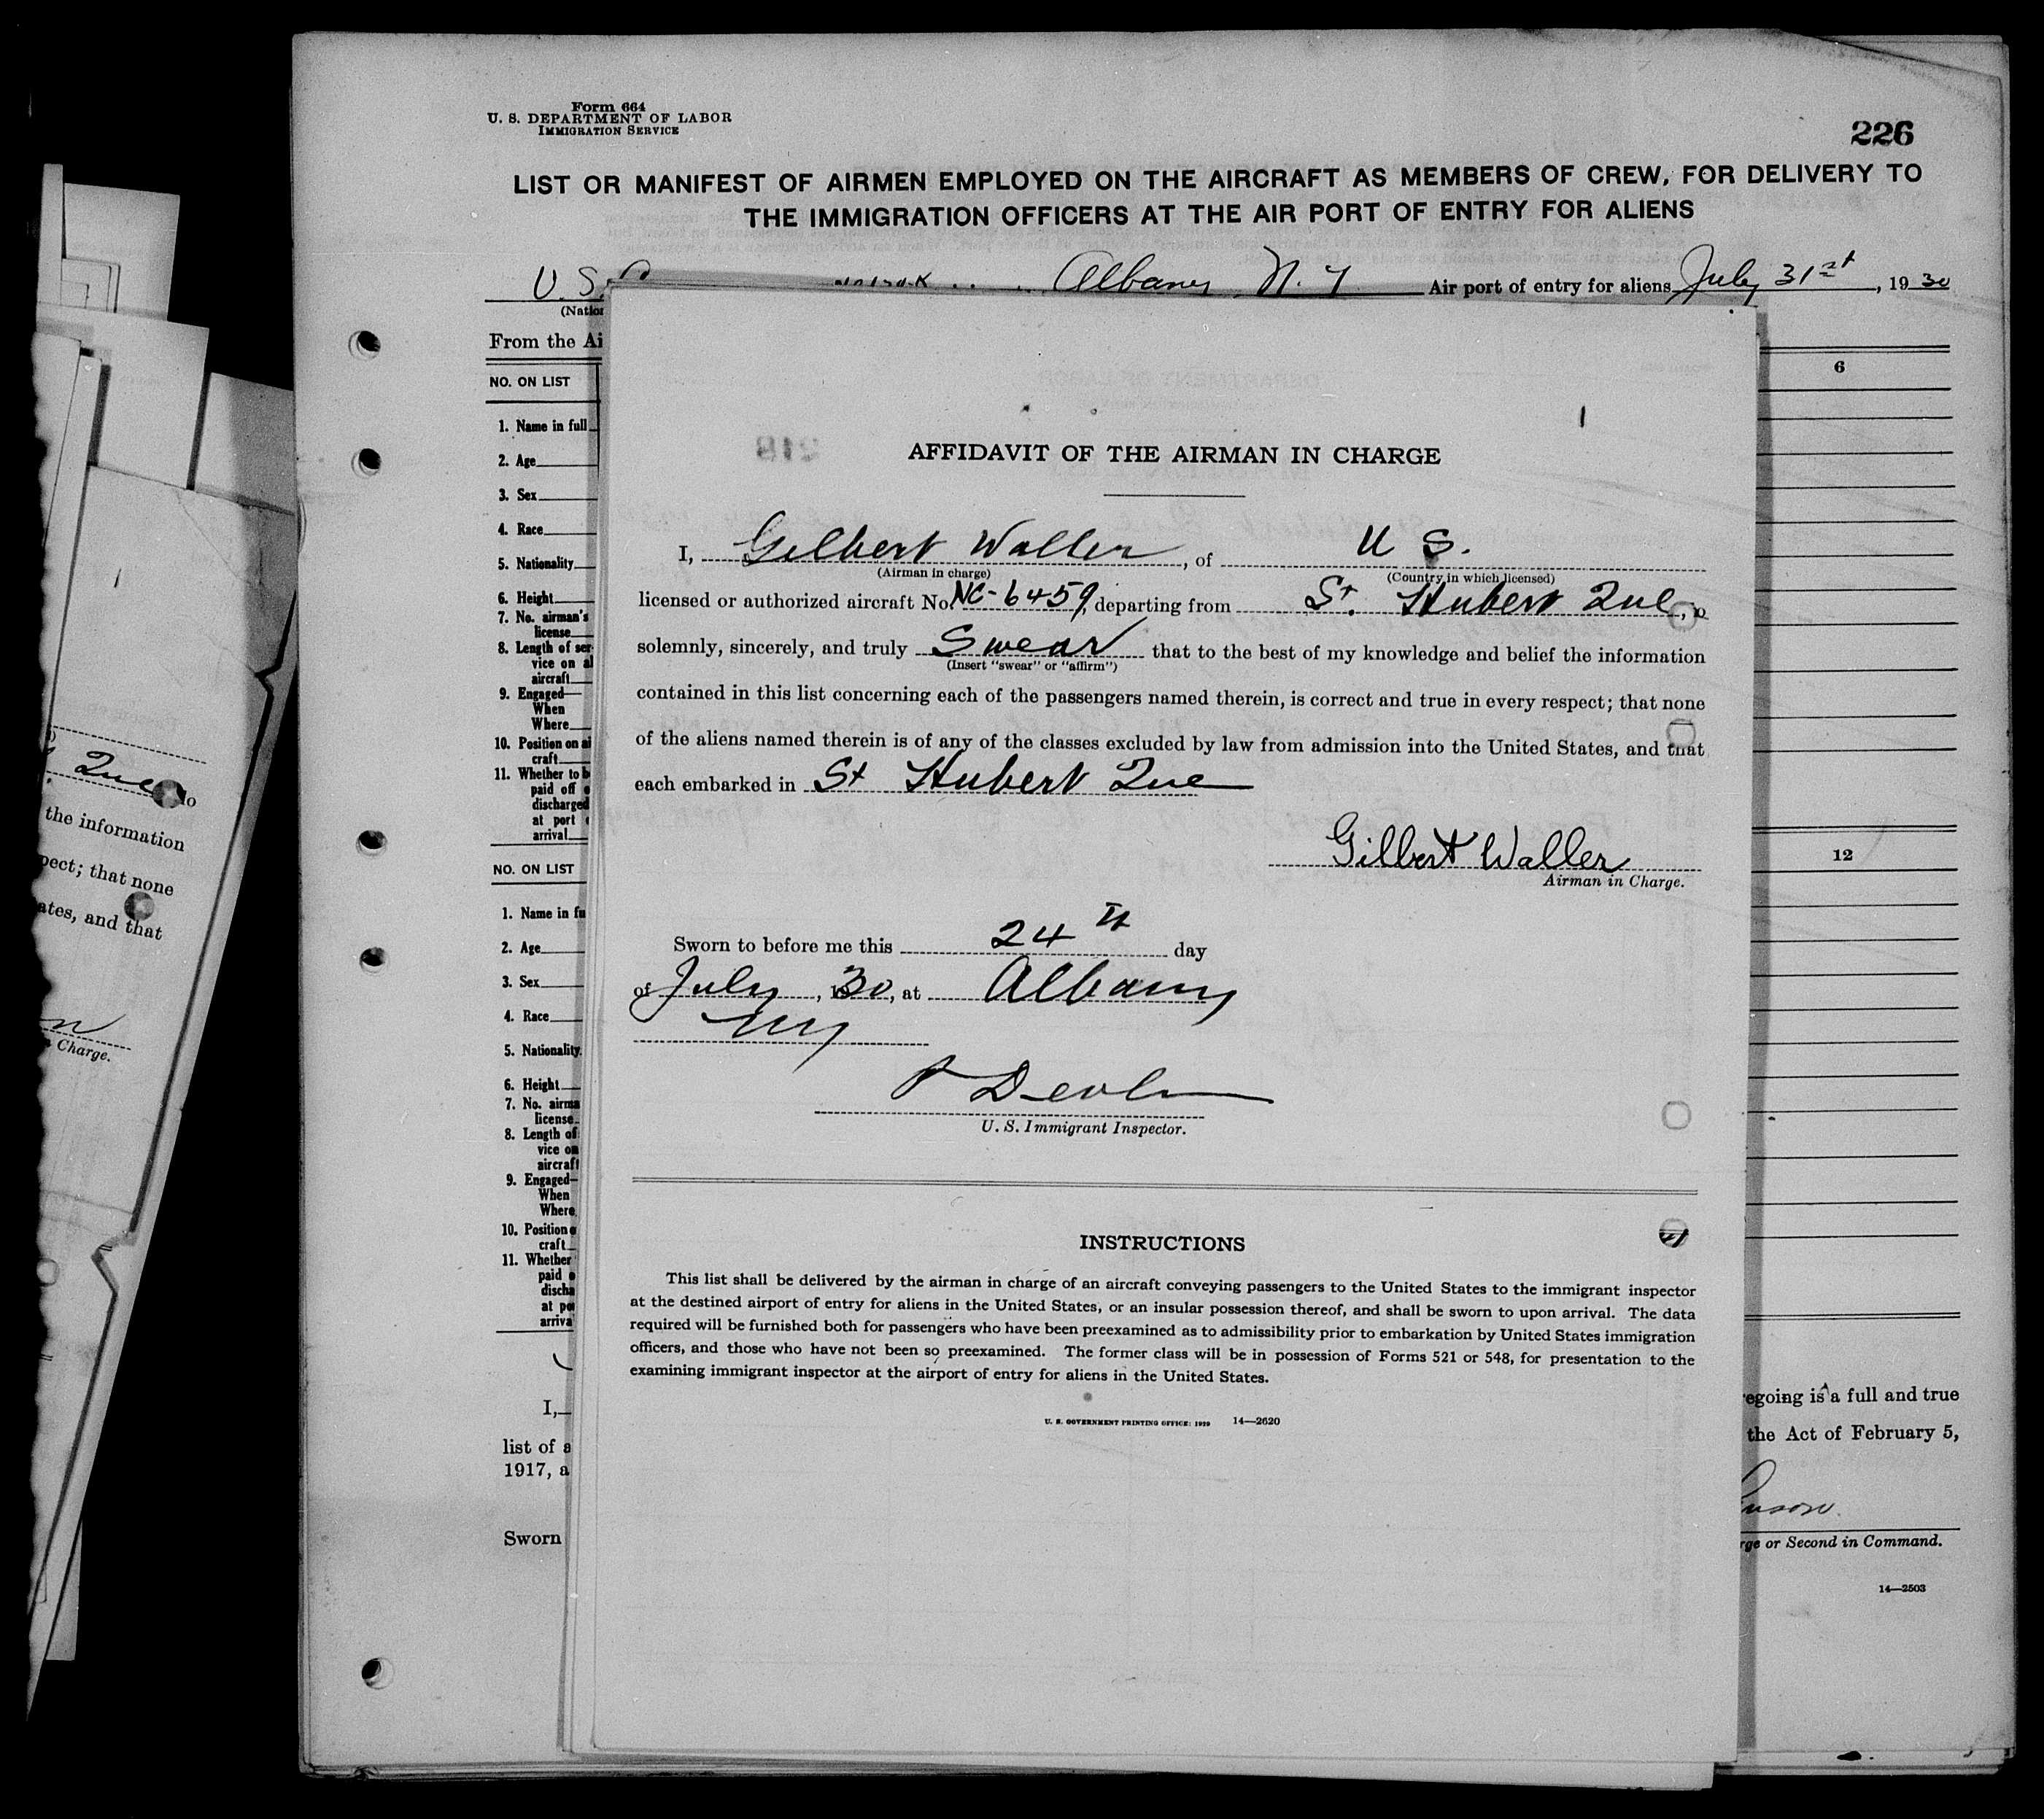 Form 664
U. S. DEPARTMENT OF LABOR
IMMIGRATION SERVICE
226
LIST OR MANIFEST OF AIRMEN EMPLOYED ON THE AIRCRAFT AS MEMBERS OF CREW, FOR DELIVERY TO
THE IMMIGRATION OFFICERS AT THE AIR PORT OF ENTRY FOR ALIENS
U. S. Albany N. Y Air port of entry for aliens July 31st, 1930
(Nation
From the Ai
NO. ON LIST
6
1. Name in full
2. Age
3. Sex
4. Race
5. Nationality
6. Height
7. No. airman's
license
8. Length of ser-
vice on ai
aircraft
9. Engaged—
When
Where
10. Position on ai
craft
11. Whether to b
paid off o
discharged
at port o
arrival
NO. ON LIST
12
1. Name in fu
2. Age
3. Sex
4. Race
5. Nationality
6. Height
7. No. airma
license
8. Length of
vice on
aircraft
9. Engaged—
When
Where
10. Position o
craft
11. Whether
paid o
discha
at por
arriva
I,
list of a
1917, a
Sworn
AFFIDAVIT OF THE AIRMAN IN CHARGE
I, Gilbert Waller, of U S.
(Airman in charge) (Country in which licensed)
licensed or authorized aircraft No. NC-6459, departing from St. Hubert Que, do
solemnly, sincerely, and truly Swear that to the best of my knowledge and belief the information
(Insert "swear" or "affirm")
contained in this list concerning each of the passengers named therein, is correct and true in every respect; that none
of the aliens named therein is of any of the classes excluded by law from admission into the United States, and that
each embarked in St Hubert Que
Gilbert Waller
Airman in Charge.
Sworn to before me this 24th day
of July, 1930, at Albany
NY
P Devlin
U. S. Immigrant Inspector.
INSTRUCTIONS
This list shall be delivered by the airman in charge of an aircraft conveying passengers to the United States to the immigrant inspector
at the destined airport of entry for aliens in the United States, or an insular possession thereof, and shall be sworn to upon arrival. The data
required will be furnished both for passengers who have been preexamined as to admissibility prior to embarkation by United States immigration
officers, and those who have not been so preexamined. The former class will be in possession of Forms 521 or 548, for presentation to the
examining immigrant inspector at the airport of entry for aliens in the United States.
U. S. GOVERNMENT PRINTING OFFICE: 1929 14—2620
egoing is a full and true
the Act of February 5,
rge or Second in Command.
14—2503
Que do
the information
pect; that none
ates, and that
n Charge.